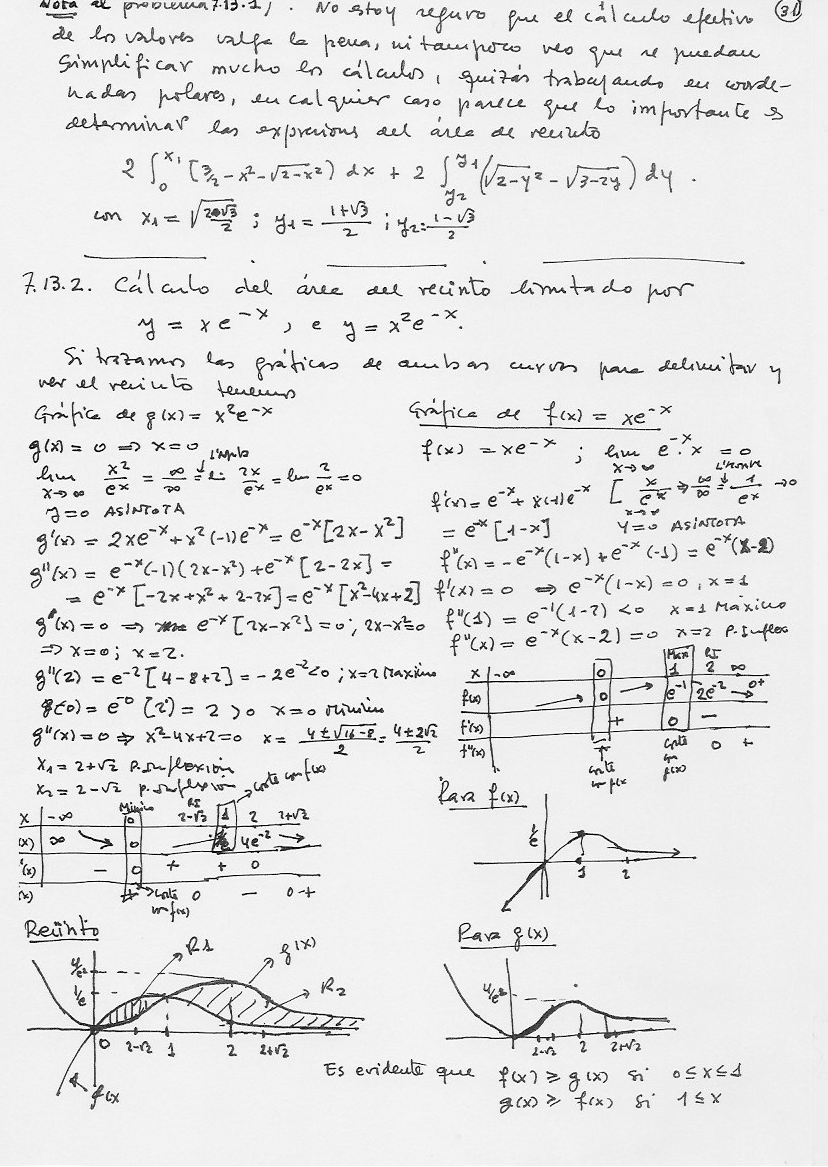 Nota al problema 7.13.1). No estoy seguro que el cálculo efectivo (31)
de los valores valga la pena, ni tampoco veo que se puedan
simplificar mucho los cálculos, quizás trabajando en coorde-
nadas polares, en calquier caso parece que lo importante es
determinar las expresions del área de recinto
2 ∫₀^{x₁} [3/2 - x² - √(2-x²)) dx + 2 ∫_{y₂}^{y₁} (√(2-y²) - √(3-2y)) dy .
con x₁ = ; y₁ = (1+√3)/2 ; y₂ = (1-√3)/2
7.13.2. Cálculo del área del recinto limitado por
y = x e^{-x}, e y = x² e^{-x}.
Si trazamos las gráficas de ambas curvas para delimitar y
ver el recinto tenemos
Gráfica de g(x) = x²e^{-x}
g(x) = 0 ⇒ x = 0
lim x→∞ x²/e^x = ∞/∞ = lim 2x/e^x = lim 2/e^x = 0
y=0 ASINTOTA
g'(x) = 2xe^{-x} + x²(-1)e^{-x} = e^{-x}[2x-x²]
g''(x) = e^{-x}(-1)(2x-x²) + e^{-x}[2-2x] =
= e^{-x}[-2x+x²+2-2x] = e^{-x}[x²-4x+2]
g'(x) = 0 ⇒ e^{-x}[2x-x²] = 0; 2x-x²=0
⇒ x=0; x=2.
g''(2) = e^{-2}[4-8+2] = -2e^{-2}<0; x=2 Maximo
g''(0) = e^{-0}[2] = 2 > 0 x=0 Minimo
g''(x) = 0 ⇒ x²-4x+2=0 x = (4±√(16-8))/2 = (4±2√2)/2
x₁ = 2+√2 P. Inflexión
x₂ = 2-√2 p. inflexion
Mínimo PI corte con f(x)
x | -∞ 0 2-√2 1 2 2+√2
(x) | ∞ 0 4e^{-2}
'(x) | - 0 + + 0
(x) | + 0 - 0 +
corte con f(x)
Gráfica de f(x) = xe^{-x}
f(x) = xe^{-x} ; lim x→∞ e^{-x}·x = 0
f'(x) = e^{-x} + x(-1)e^{-x} [x/e^x ⇒ ∞/∞ = 1/e^x → 0
= e^{-x}[1-x] y=0 ASINTOTA
f''(x) = -e^{-x}(1-x) + e^{-x}(-1) = e^{-x}(x-2)
f'(x) = 0 ⇒ e^{-x}(1-x) = 0, x=1
f''(1) = e^{-1}(1-2) <0 x=1 Máximo
f''(x) = e^{-x}(x-2) = 0 x=2 P. Inflex
Max PI
x | -∞ 0 1 2 ∞
f(x) | 0 e^{-1} 2e^{-2} 0+
f'(x) | + 0 -
f''(x) | 0 +
corte con f(x) corte con g(x)
Para f(x)
1/e 1 2
Recinto
R1 g(x) R2
4/e² 1/e
0 2-√2 1 2 2+√2
f(x
Para g(x)
4/e²
2-√2 2 2+√2
Es evidente que f(x) ≥ g(x) si 0≤x≤1
g(x) ≥ f(x) si 1≤x